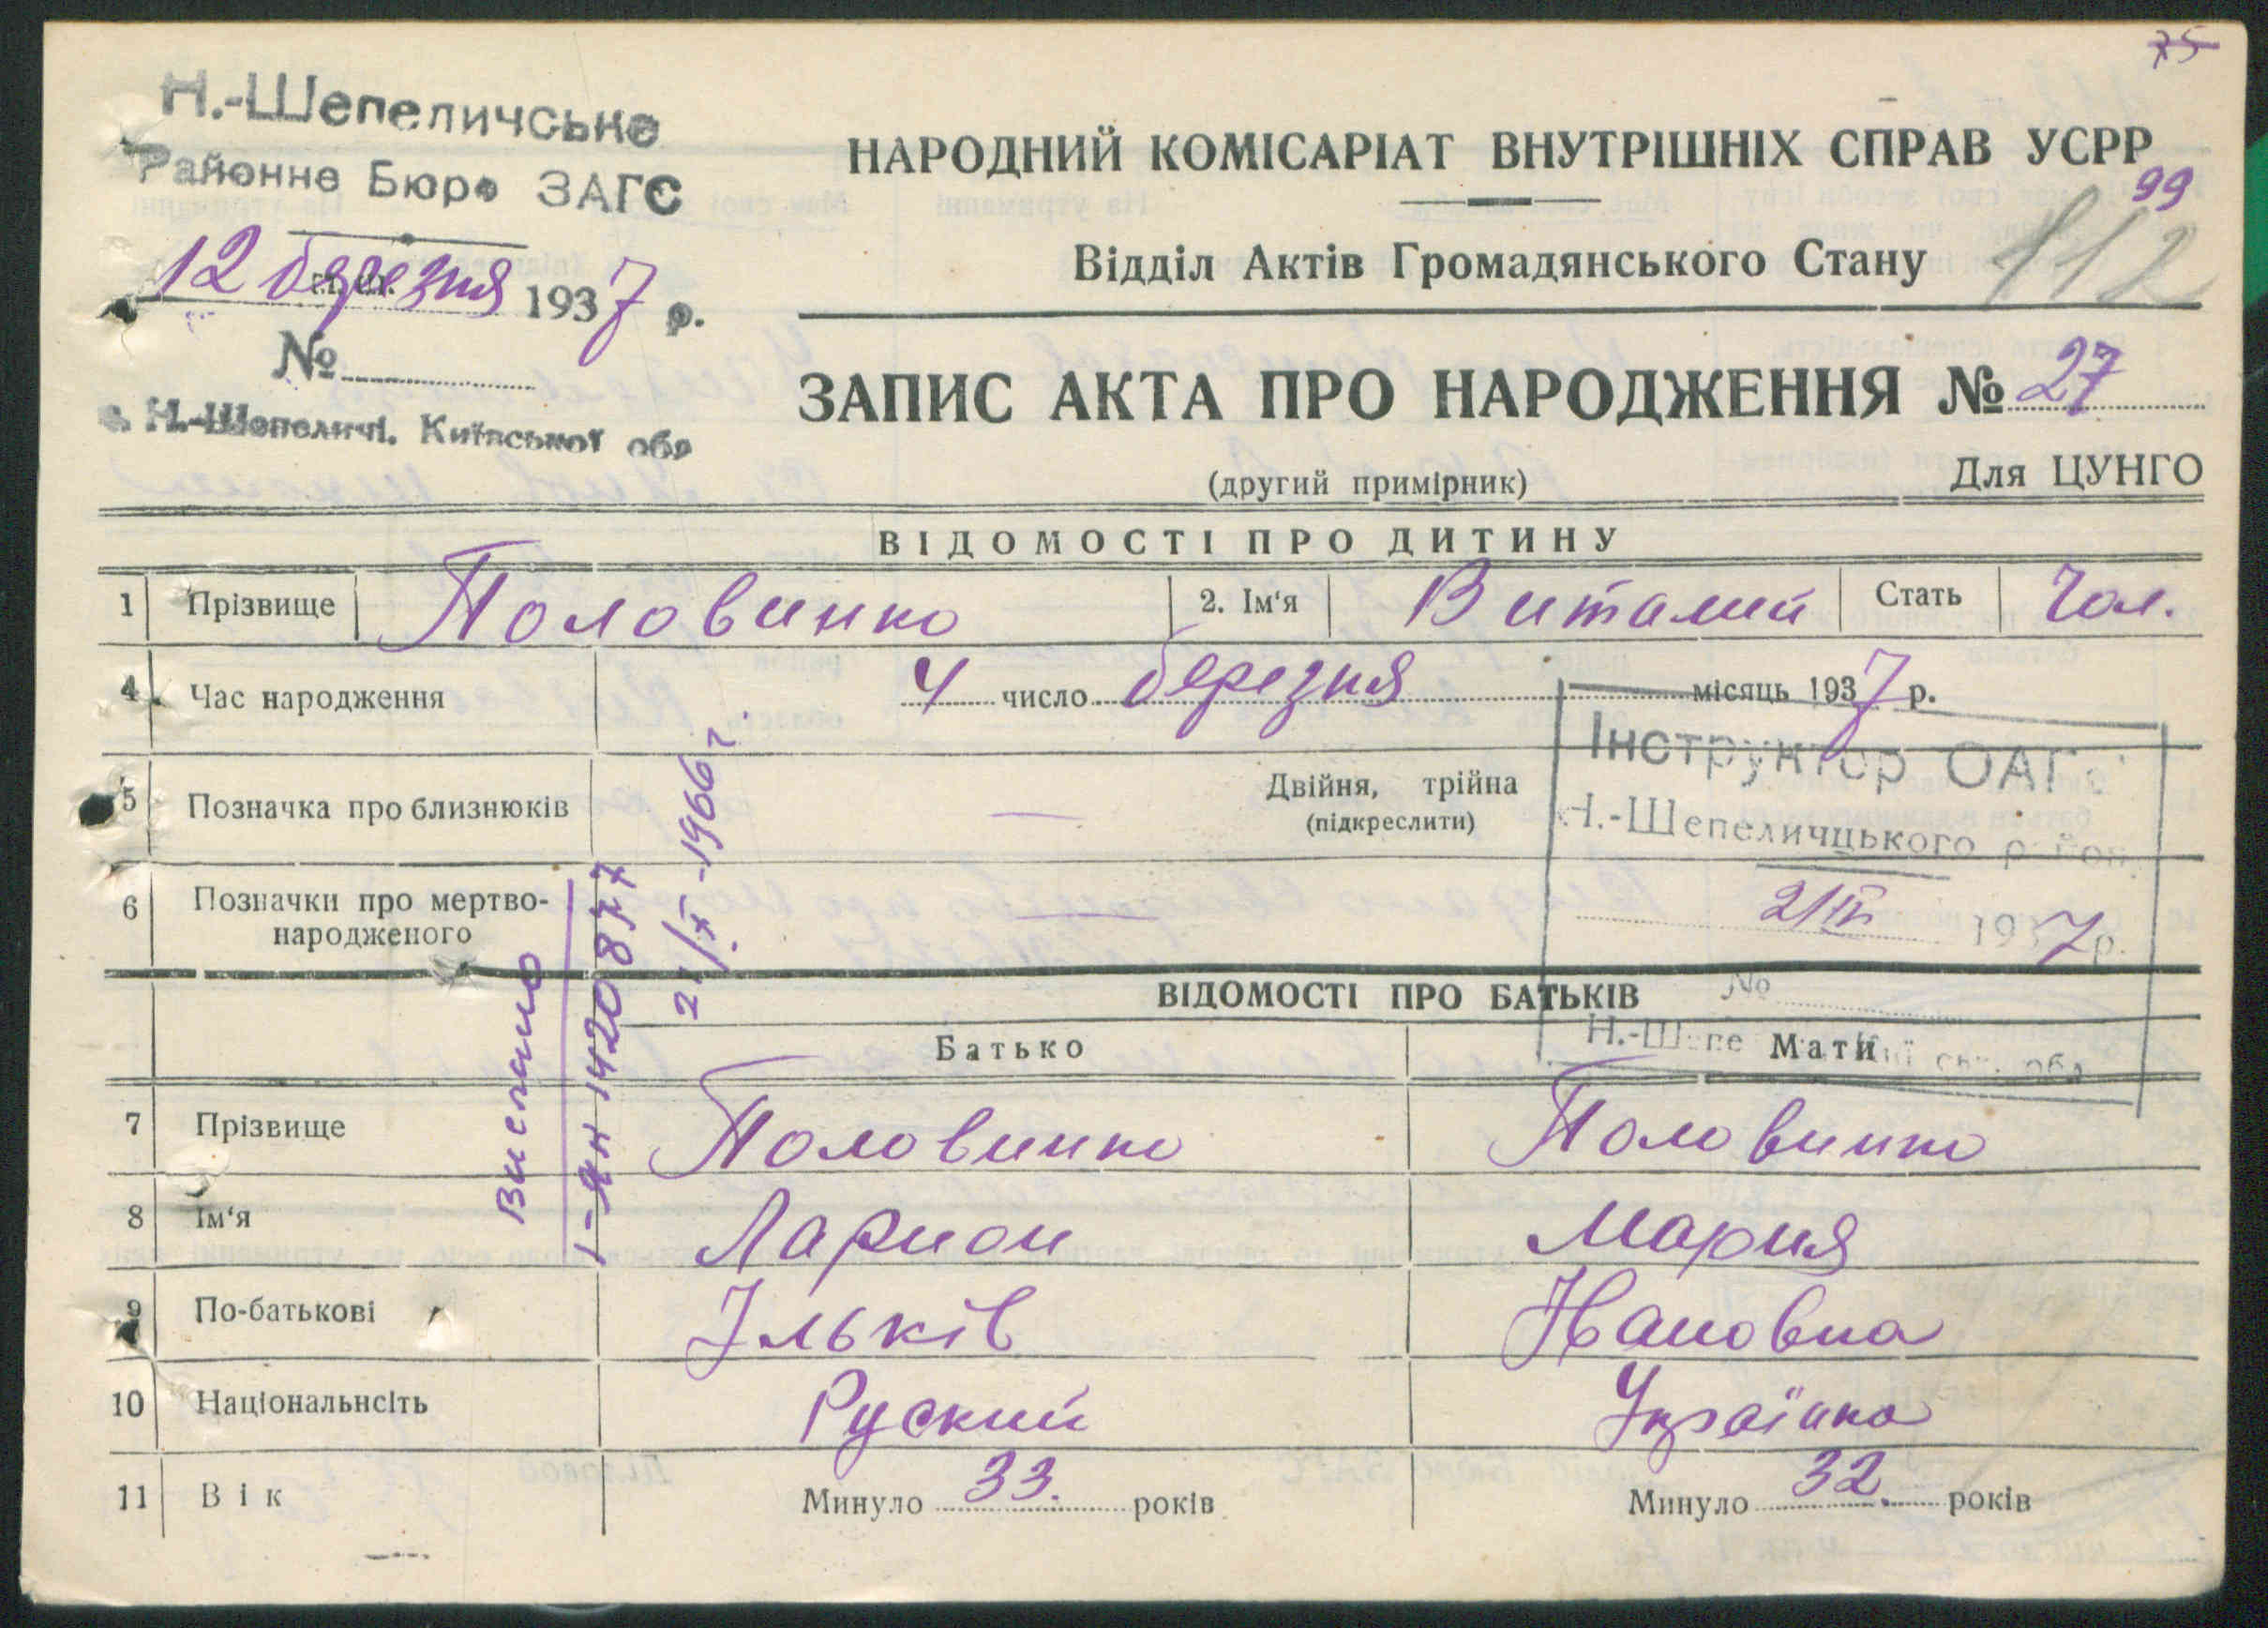 75
Н.-Шепеличське
Районне Бюро ЗАГС
12 березня 1937 р.
№
с. Н.-Шепеличі, Київської обл
НАРОДНИЙ КОМІСАРІАТ ВНУТРІШНІХ СПРАВ УСРР
99
Відділ Актів Громадянського Стану
112
ЗАПИС АКТА ПРО НАРОДЖЕННЯ № 27
(другий примірник)
Для ЦУНГО
ВІДОМОСТІ ПРО ДИТИНУ
1 Прізвище Половинко 2. Ім‘я Виталий Стать Чол.
4. Час народження 4 число березня місяць 1937 р.
5 Позначка про близнюків — Двійня, трійна
(підкреслити)
6 Позначки про мертво-
народженого —
Інструктор ОАГС
Н.-Шепеличцького район
2/IV 1937р.
№
Н.-Шепе обл
Вислано
1-ЯН 1420877
21/X-1966 г.
ВІДОМОСТІ ПРО БАТЬКІВ
Батько Мати
7 Прізвище Половинко Половинко
8 Ім‘я Ларион Мария
9 По-батькові Ільків Ивановна
10 Національнсіть Руский Українка
11 Вік Минуло 33. років Минуло 32. років